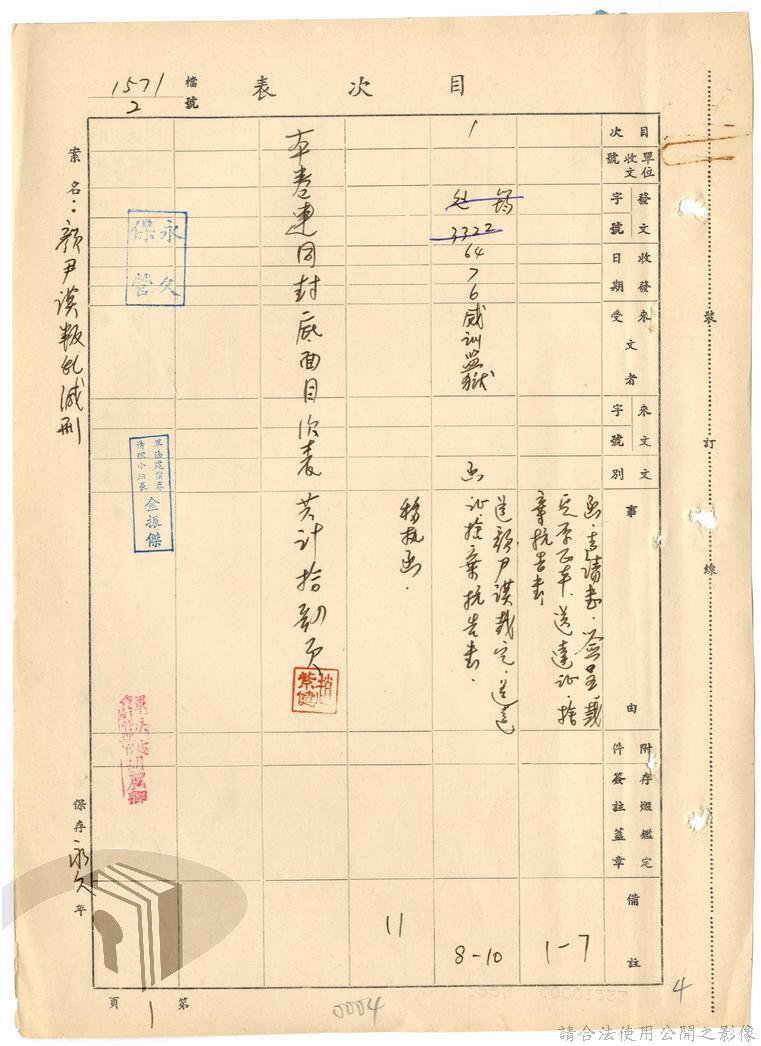 目次表
檔號
1571
2
案名：顏尹謨叛亂減刑
目次
單位收文號
發文字號
收發日期
來文受文者
來文字號
文別
事由
附件
存燬鑑定簽註蓋章
備註
函、聲請書、簽呈、裁
定原正本、送達證、捨
棄抗告書
1-7
1
3322
64
7
6
威訓監獄
函
送顏尹謨裁定、送達
證、捨棄抗告書．
8-10
移執函．
11
本卷連同封底面目次表共計拾 頁
趙紫健
永久保管
金振傑
保存永久年
第1頁
裝訂線
0004
4
請合法使用公開之影像